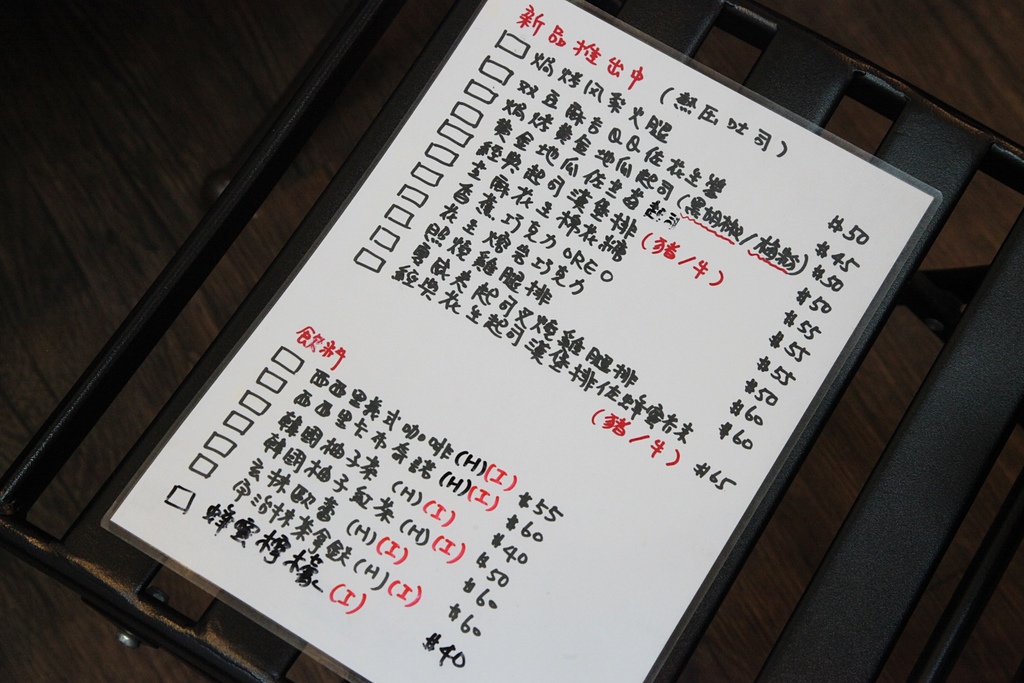 新品推出中 (熱压吐司)
焗烤风梨火腿 $50
双豆酥吉QQ佐花生醬 $45
焗烤黄金地瓜起司(黑胡椒/梅粉) $50
黄金地瓜佐生香起司 $50
經典起司漢堡排 (豬/牛) $55
主厮花生棉花糖 $55
香蕉巧克力OREO $55
花生燻蕉巧克力 $50
照燒雞腿排 $60
夏威夷起司叉燒雞腿排 $60
經典花生起司漢堡排佐蜂蜜芥末 (豬/牛) $65
飲料
西西里美式咖啡(H)(I) $55
西西里卡布奇諾(H)(I) $60
韓國柚子茶 (H)(I) $40
韓國柚子紅茶 (H)(I) $50
玄抹歐蕾 (H)(I) $60
宇治抹茶拿鉄(H)(I) $60
蜂蜜檸檬(I) $40